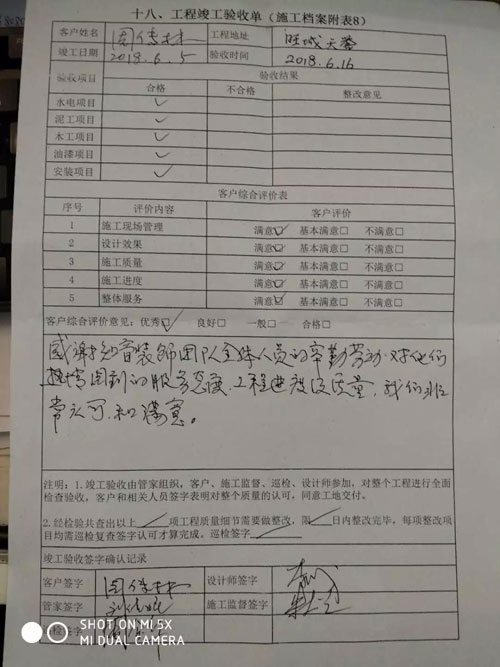 十八、工程竣工验收单（施工档案附表8）
客户姓名 工程地址
竣工日期 2018.6.5 验收时间 2018.6.16
验收项目 验收结果
合格 不合格 整改意见
水电项目 ✓
泥工项目 ✓
木工项目 ✓
油漆项目 ✓
安装项目 ✓
客户综合评价表
序号 评价内容 客户评价
1 施工现场管理 满意☑ 基本满意□ 不满意□
2 设计效果 满意☑ 基本满意□ 不满意□
3 施工质量 满意☑ 基本满意□ 不满意□
4 施工进度 满意☑ 基本满意□ 不满意□
5 整体服务 满意☑ 基本满意□ 不满意□
客户综合评价意见：优秀☑ 良好□ 一般□ 合格□
感谢知音装饰团队全体人员的辛勤劳动.对他们
热情周到的服务态度.工程进度及质量，我们非
常认可.和满意。
注明：1.竣工验收由管家组织，客户、施工监督、巡检、设计师参加，对整个工程进行全面
检查验收，客户和相关人员签字表明对整个质量的认可，同意工地交付。
2.经检验共查出以上 项工程质量细节需要做整改，限 日内整改完毕，每项整改项
目均需巡检复查签字认可才算完成，巡检签字
竣工验收签字确认记录
客户签字 设计师签字
管家签字 施工监督签字
签字
SHOT ON MI 5X
MI DUAL CAMERA